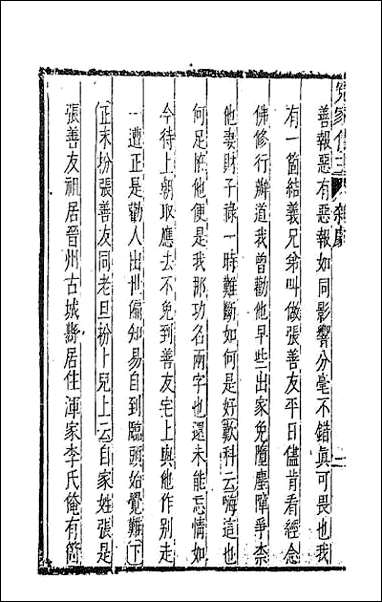 冤家債主 雜劇 一
善報惡有惡報如同影響分毫不錯真可畏也我
有一箇結義兄弟叫做張善友平日儘肯看經念
佛修行辦道我曾勸他早些出家免墮塵障爭柰
他妻財子祿一時難斷如何是好歎科云嗨這也
何足怪他便是我那功名兩字也還未能忘情如
今待上朝取應去不免到善友宅上與他作別走
一遭正是勸人出世偏知易自到臨頭始覺難下
正末扮張善友同老旦扮卜兒上云自家姓張是
張善友祖居晉州古城縣居住渾家李氏俺有箇